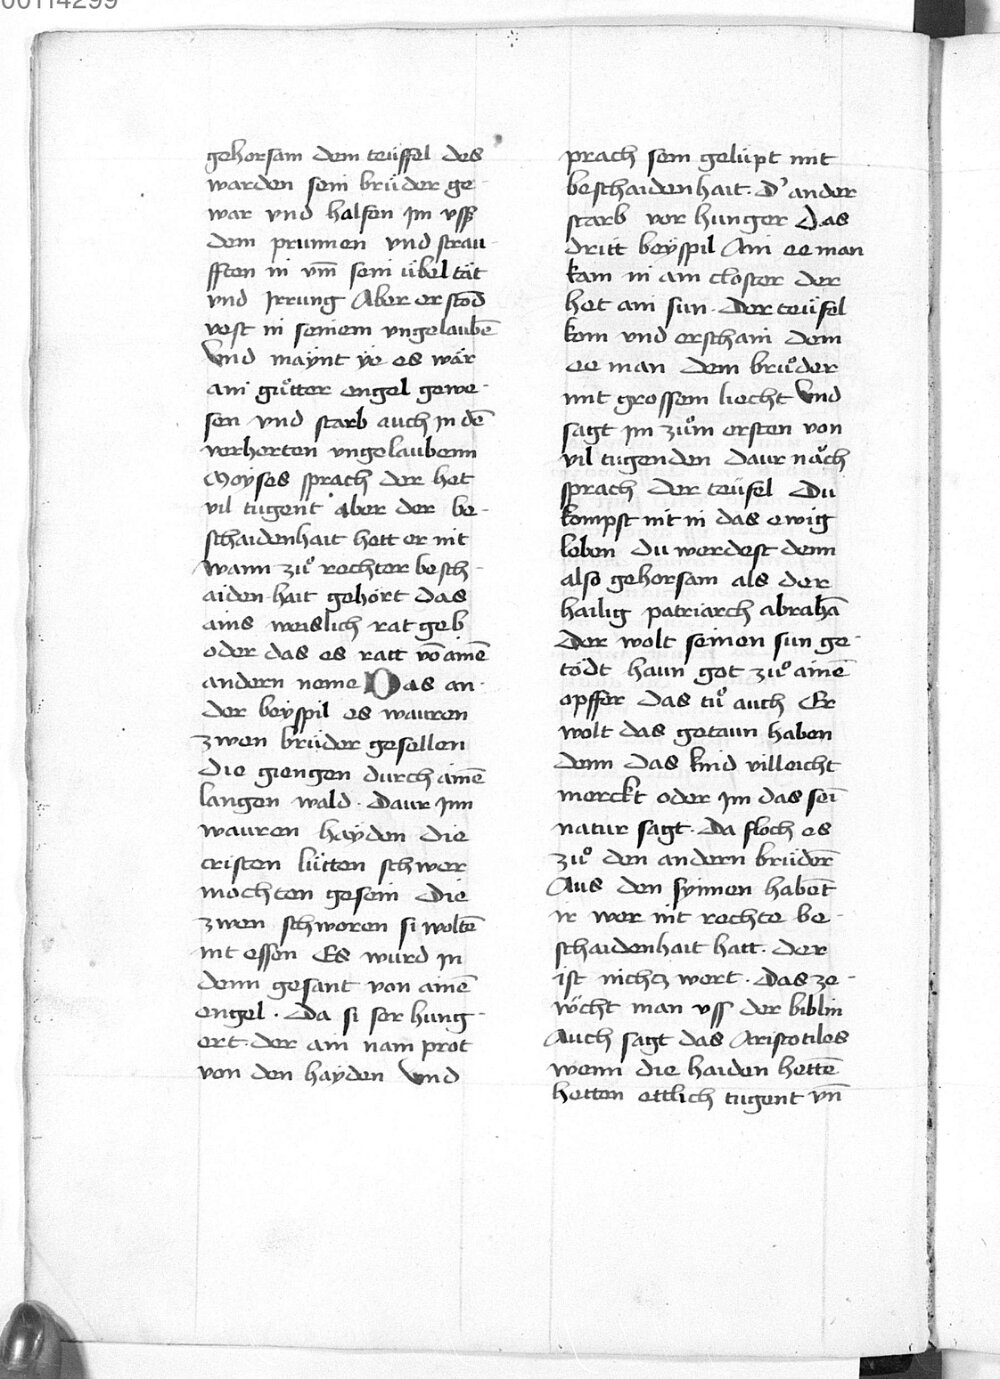 00114299
gehorsam dem teüffel des
warden sein brüder ge-
war vnd halfen jm vß
dem prunnen vnd strau-
fften in vm̄ sein übel tät
vnd jrrung Aber er stōd
vest in seinem vngelaubē
Vnd maÿnt ÿe es wär
ain gůtter engel gewe-
sen vnd starb auch jn dē
verherten vngelaubenn
Moÿses sprach der het
vil tugent aber der be-
schaidenhait hett er nit
wann zů rechter besch-
aiden hait gehört das
ains weislich rat geb
oder das es ratt vō ainē
andern neme Das an-
der beÿspil es wauren
zwen brüder gesellen
die giengen durch ainē
langen wald. Daur jnn
wauren haÿden die
cristen lütten schwer
mochten gesein Die
zwen schworen si woltē
nit essen Es wurd jn
denn gesant von ainē
engel. Da si ser hung-
ert. der ain nam prot
von den haÿden Vnd
prach sein gelüpt mit
beschaidenhait. D' ander
starb vor hunger Das
dritt beÿspil Ain ee man
kam in ain closter der
het ain sun. Der teüfel
kom vnd erschain dem
ee man dem brůder
mit grossem liecht Vnd
sagt jm zům ersten von
vil tugenden daur nach
sprach der teüfel Du
kompst nit in das ewig
leben du werdest denn
also gehorsam als der
hailig patriarch abrahā
Der wolt seinen sun ge-
tödt haun got zů ainē
opffer das tů auch Er
wolt das getaun haben
denn das kind villeicht
merckt oder jm das sei
natur sagt. Da floch es
zů den andern brüdern
Aus den synnen habent
ir wer nit rechte be-
schaidenhait hatt. der
ist nichcz wert. Das ze-
wcht man vss der biblin
Auch sagt das Aristotiles
wenn die haiden hettē
hetten ettlich tugent vn̄